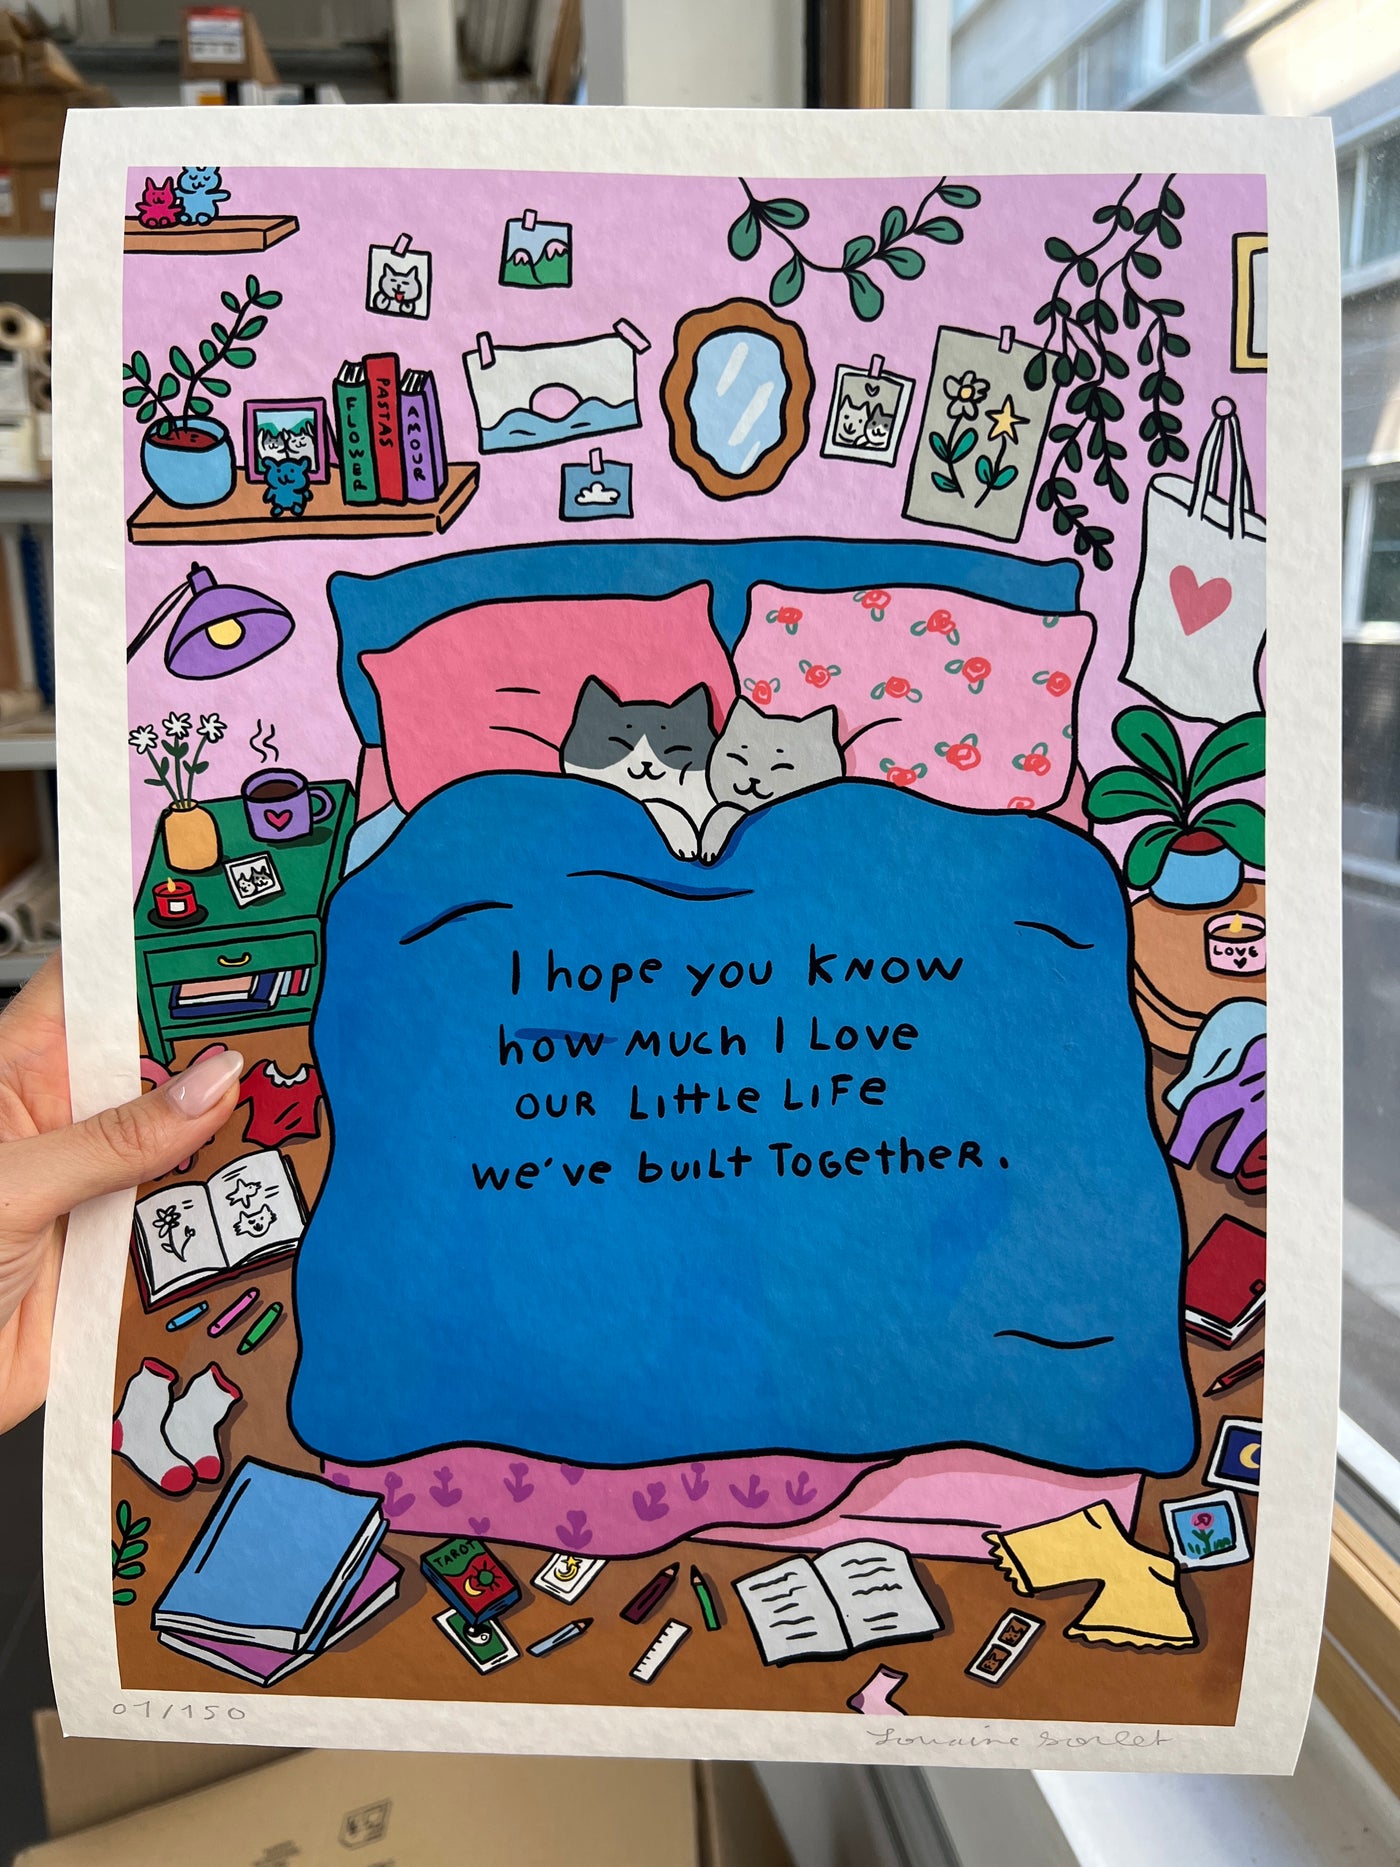 FLOWER
PASTAS
AMOUR
LOVE
I hope you know
how much I Love
our Little Life
we've built Together.
TAROT
01/150
Lorraine Sorlet